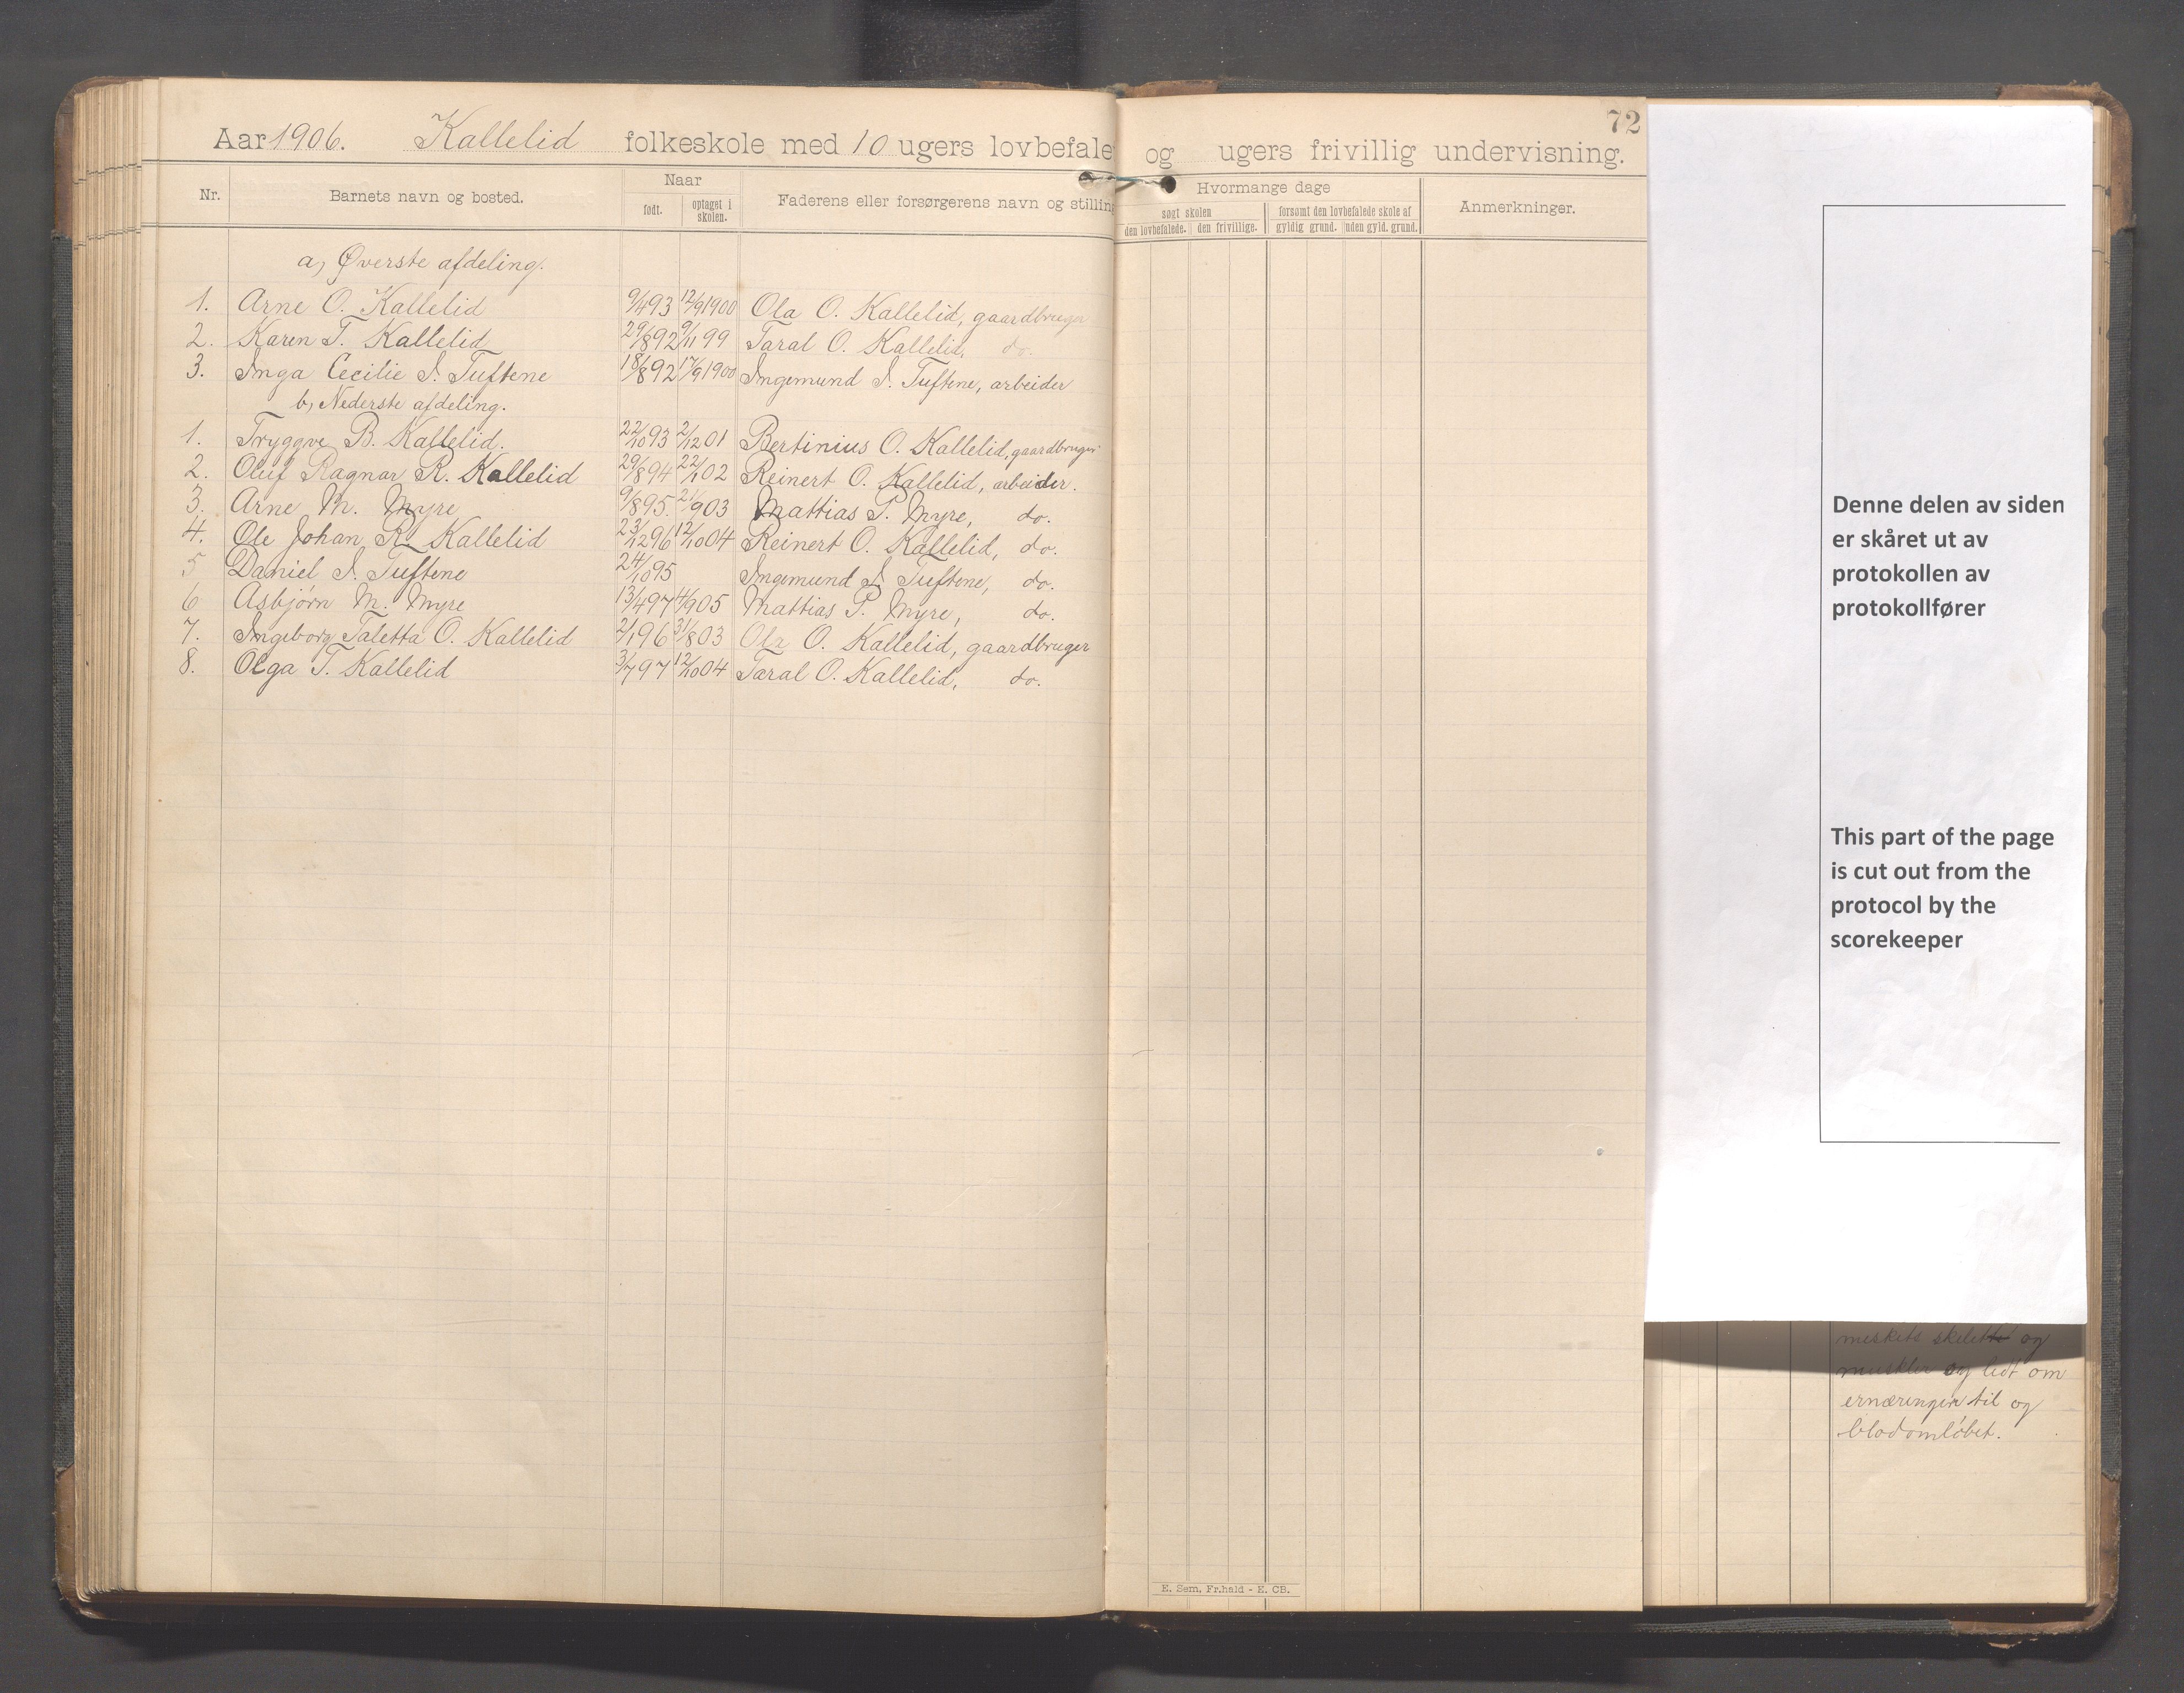 72
Aar 1906. Kallelid folkeskole med 10 ugers lovbefale og ugers frivillig undervisning.
Nr. Barnets navn og bosted. Naar født. optaget i skolen. Faderens eller forsørgerens navn og stilling Hvormange dage søgt skolen den lovbefalede. den frivillige. forsømt den lovbefalede skole af gyldig grund. uden gyld. grund. Anmerkninger.
a, Øverste afdeling.
1. Arne O. Kallelid 9/4 93 12/9 1900 Ola O. Kallelid, gaardbruger
2. Karen T. Kallelid 29/8 92 9/11 99 Taral O. Kallelid, do.
3. Inga Cecilie I. Tuftene 18/8 92 17/9 1900 Ingemund I. Tuftene, arbeider
b, Nederste afdeling.
1. Tryggve B. Kallelid. 22/10 93 2/12 01 Bertinius O. Kallelid, gaardbruger
2. Oluf Ragnar R. Kallelid 29/8 94 22/1 02 Reinert O. Kallelid, arbeider.
3. Arne M. Myre 9/8 95. 21/9 03 Mattias P. Myre, do.
4. Ole Johan R. Kallelid 23/12 96 12/10 04 Reinert O. Kallelid, do.
5 Daniel I. Tuftene 24/10 95 Ingemund I. Tuftene, do.
6 Asbjørn M. Myre 13/4 97 4/9 05 Mattias P. Myre, do.
7. Ingeborg Taletta O. Kallelid 2/1 96 31/8 03 Ola O. Kallelid, gaardbruger
8. Olga T. Kallelid 3/7 97 12/10 04 Taral O. Kallelid, do.
E. Sem, Fr.hald - E. CB.
Denne delen av siden
er skåret ut av
protokollen av
protokollfører
This part of the page
is cut out from the
protocol by the
scorekeeper
meskets skelettet og
muskler og lidt om
ernæringen til og
blodomløbet.